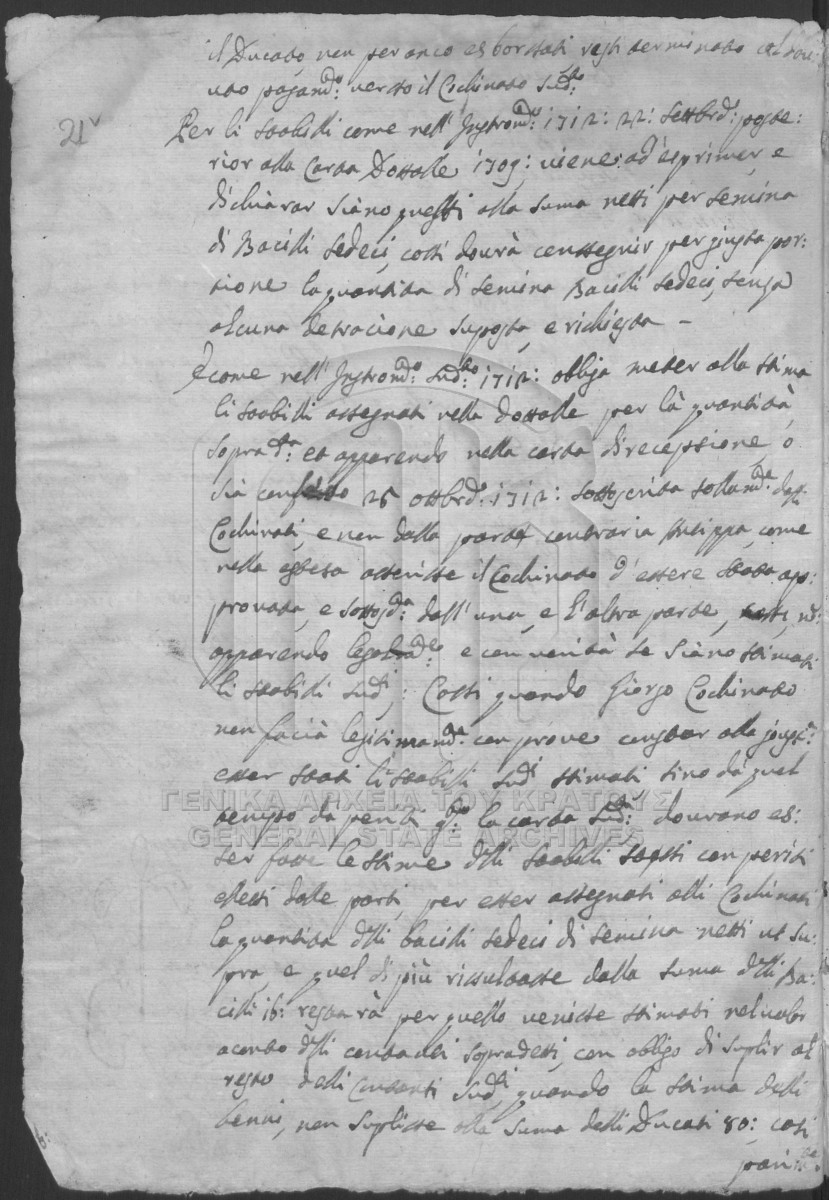 21v
il Ducato, non per anco esborsati resti terminato
pagand.o verso il Cochinato sud.to
Per li stabilli come nell' Jnstrom.to 1712: 22: Settbr.e: poste:
rior alla Carta Dottalle 1709: viene: ad' esprimer, e
dichiarar siano questi alla suma netti per semina
di Bacilli sedeci, cossi dovrà conseguir per giusta por:
tione la quantita di semina Bacilli sedeci, senza
alcuna detracione suposta, e richiesta –
E come nell' Jnstrom.to sud.to 1712: obliga meter alla stima
li stabilli assegnati nella dottalle per là quantità
soprad.a et apparendo nella carta di recepsione, ò
sia confesso 25 ottbr.e 1712: sottoscrita sollam.te dalli
Cochinati, e non dalla parte contraria Filippa, come
nella estesa asserisse il Cochinato d'essere stata ap:
provata, e sottos.ta dall'una, e l'altra parte,
apparendo legalm.te e con verità se siano stimati
li stabili sud.i; Cossi quando Giorgo Cochinato
non facià legitimam.te con prove constar alla giust.a
esser stati li stabilli sud.i stimati sino dà quel
tempo da periti la carta sud.a: dovrano es:
ser fatte le stime d'lli stabilli con periti
elletti dalle parti, per esser assegnati alli Cochinati
la quantita d'lli bacilli sedeci di semina netti ut su:
pra, e quel di più rissultasse dalla suma d'lli Ba:
cilli 16: restarà per quello venisse stimati nel valor
aconto d'lli contanti sopradetti, con obligo di suplir al
resto delli Contanti sud.i, quando la stima delli
benni, non suplisse alla suma delli Ducati 80: cosi
parim.te
ΓΕΝΙΚΑ ΑΡΧΕΙΑ ΤΟΥ ΚΡΑΤΟΥΣ
GENERAL STATE ARCHIVES